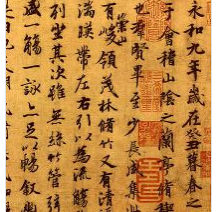 永和九年歲在癸丑暮春之
于會稽山陰之蘭亭脩稧
也群賢畢至少長咸集此
有崇山峻領茂林脩竹又有清
湍暎帶左右引以為流觴
列坐其次雖無絲竹管弦
盛一觴一詠亦足以暢敘